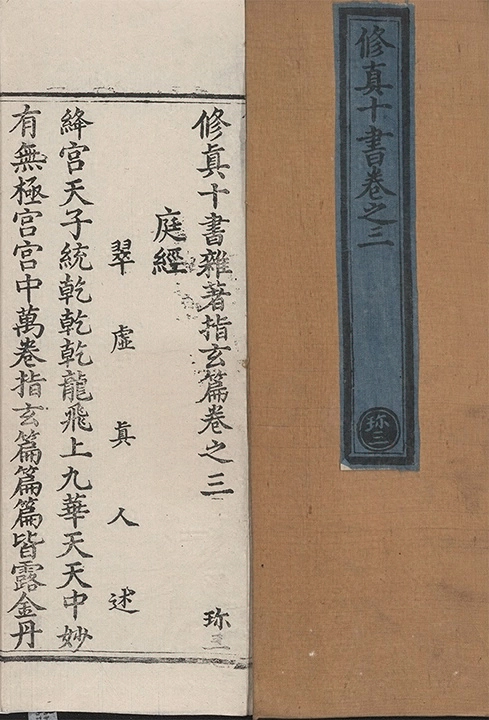 修真十書卷之三
珎三
修眞十書雜著指玄篇卷之三
珎三
庭經
翠虛眞人述
絳宮天子統乾乾乾龍飛上九華天天中妙
有無極宮宮中萬卷指玄篇篇篇皆露金丹